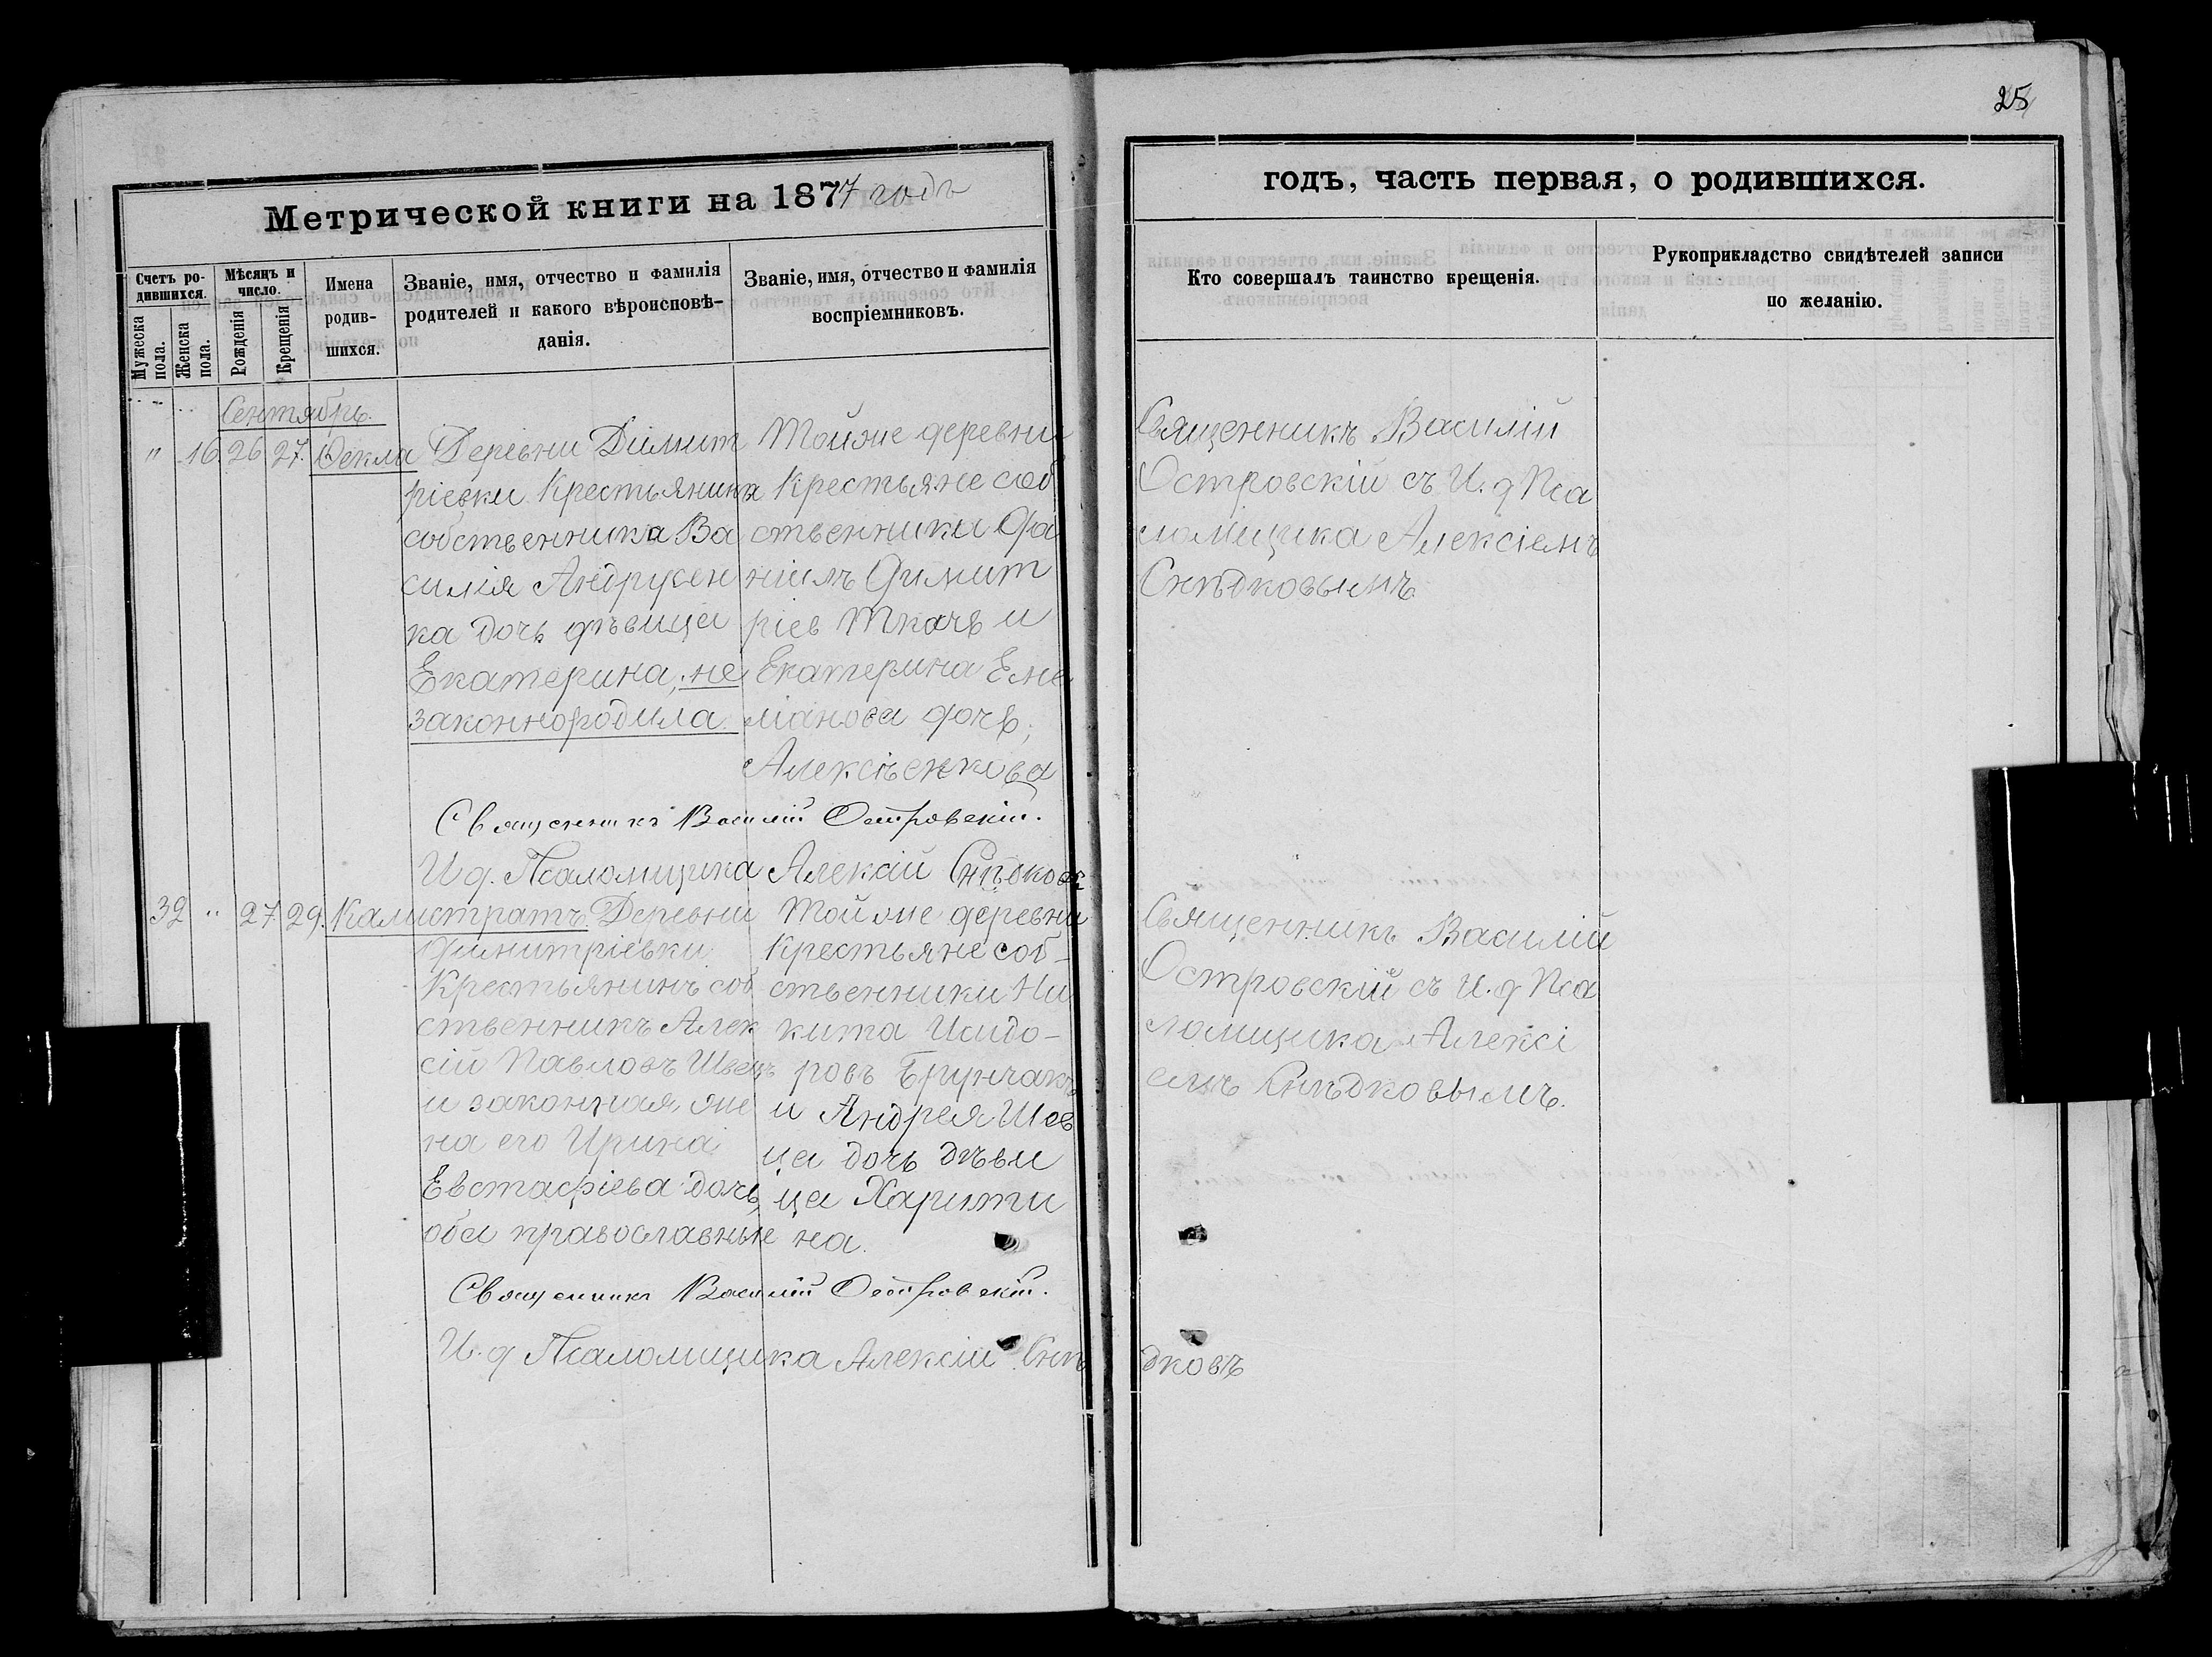 25
Метрической книги на 1877 годъ
годъ, часть первая, о родившихся.
Счетъ ро-
дившихся.
Мужеска
пола.
Женска
пола.
Мѣсяцъ и
число.
Рожденія
Крещенія
Имена
родив-
шихся.
Званіе, имя, отчество и фамилія
родителей и какого вѣроисповѣ-
данія.
Званіе, имя, отчество и фамилія
воспріемниковъ.
Кто совершалъ таинство крещенія.
Рукоприкладство свидѣтелей записи
по желанію.
Сентябрь.
" 16. 26 27. Ѳекла
Деревни Димит
ріевки Крестьянина
собственника Ва
силія Андрусен
ка дочь дѣвица
Екатерина, не
законнородила.
Той же деревни
Крестьяне соб
ственники
Димит
ріев Ткачъ и
Екатерина Еме
ліанова дочь,
Священникъ Василій
Островскій съ И. д Пса
ломщика Алексіемъ
Снѣдковымъ
Священникъ Василій Островскій.
И д. Псаломщика Алексій Снѣдковъ
32 " 27 29. Калистратъ
Деревни
Димитріевки
Крестьянинъ соб
ственникъ Алек
сій Павловъ Швецъ
и законная же
на его Ирина
Евстафіева дочь,
оба православные
Той же деревни
Крестьяне соб-
ственники Ни
кита Исидо-
ровъ Брунчакъ
и Андрея Шев
ца дочь дѣви
ца Харити
на.
Священникъ Василій
Островскій съ И. д Пса
ломщика Алексі
емъ Снѣдковымъ.
Священникъ Василій Островскій.
И. д Псаломщика Алексій Снѣ дковъ